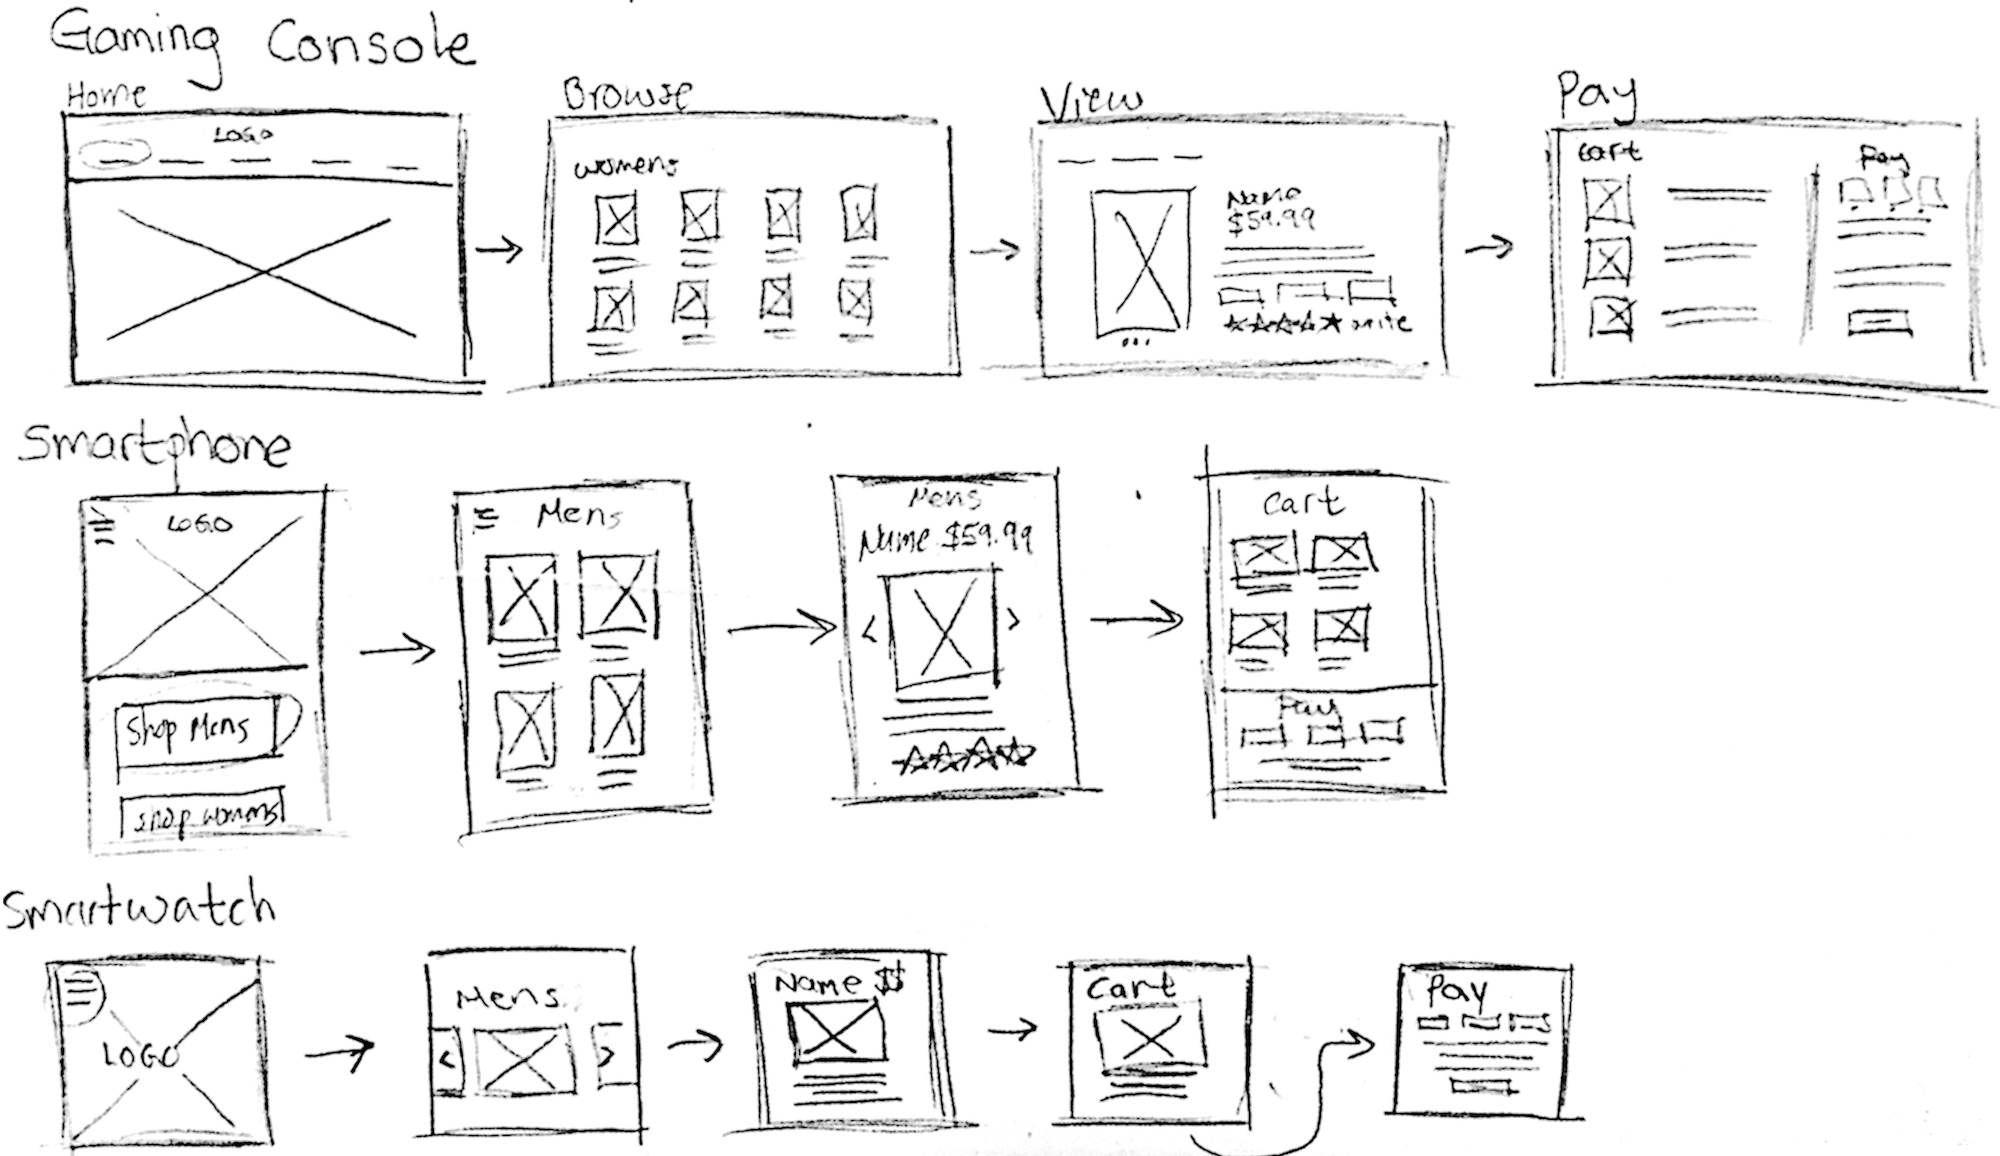 Gaming Console
Home
LOGO
Browse
womens
View
Name
$59.99
Pay
Cart
Pay
Smartphone
LOGO
Shop Mens
Shop womens
Mens
Mens
Name $59.99
Cart
Pay
Smartwatch
LOGO
Mens
Name $
Cart
Pay